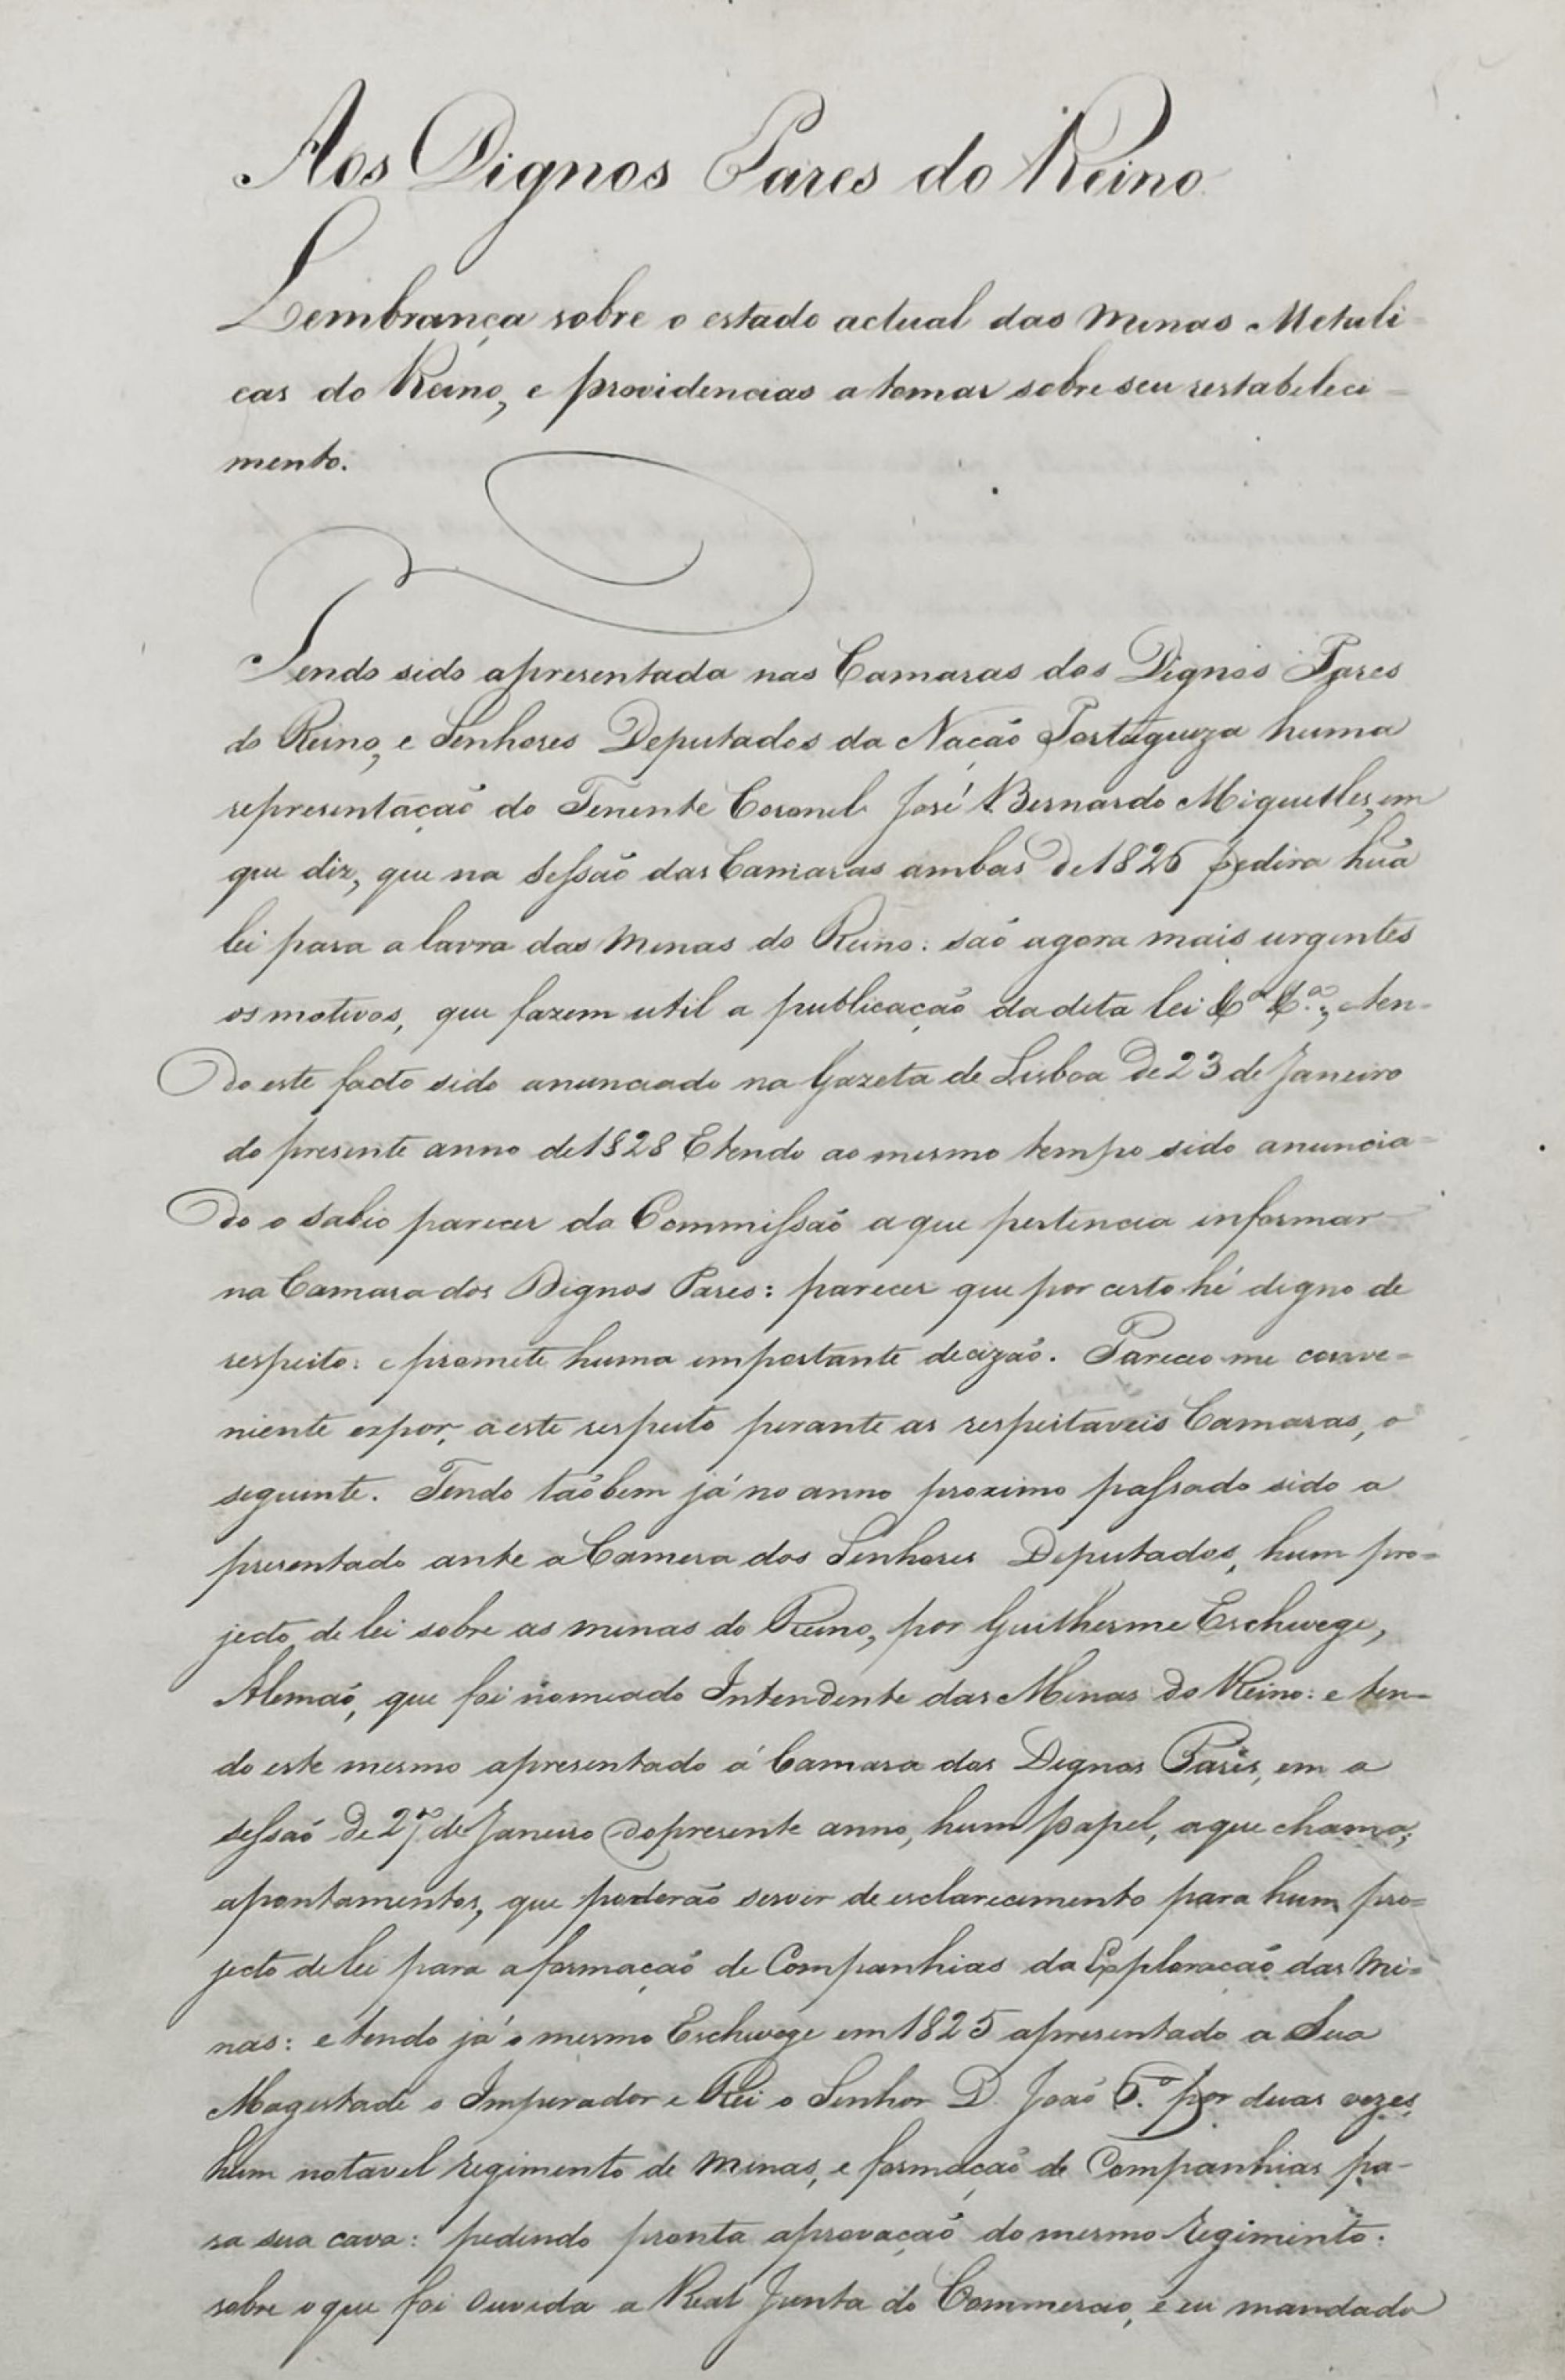 Aos Dignos Pares do Reino
Lembrança sobre o estado actual das Minas Metali
cas do Reino, e providencias a tomar sobre seu restabeleci-
mento.
Tendo sido apresentada nas Camaras dos Dignos Pares
do Reino, e Senhores Deputados da Nação Portugueza huma
representação do Tenente Coronel José Bernardo Miguelles, em
que diz, que na Sessão das Camaras ambas de 1826 pedira huã
lei para a lavra das Minas do Reino: são agora mais urgentes
os motivos, que fazem util a publicação da dita lei &ª &ª; e ten-
do este facto sido anunciado na Gazeta de Lisboa de 23 de Janeiro
do presente anno de 1828 E tendo ao mesmo tempo sido anuncia=
do o sabio parecer da Commissão a que pertencia informar
na Camara dos Dignos Pares: parecer que por certo hé digno de
respeito: e promete huma importante decizão. Pareceo-me conve=
niente expor, a este respeito perante as respeitaveis Camaras, o
seguinte. Tendo taõbem já no anno proximo passado sido a
presentado ante a Camera dos Senhores Deputados, hum pro=
jecto de lei sobre as minas do Reino, por Guilherme Eschwege,
Alemaõ, que foi nomeado Intendente das Minas do Reino: e ten=
do este mesmo apresentado á Camara dos Dignos Pares, em a
sessaõ de 27 de Janeiro do presente anno, hum papel, a que chama;
apontamentos, que poderão servir de esclarecimento para hum pro=
jecto de lei para a formaçaõ de Companhias da Exploracaõ das Mi=
nas: e tendo já o mesmo Eschwege em 1825 apresentado a Sua
Magestade o Imperador e Rei o Senhor D. Joaõ 6.º por duas vezes
hum notavel regimento de Minas, e formaçaõ de Companhias pa-
ra sua cava: pedindo pronta aprovaçaõ do mesmo regimento:
sobre o que foi ouvida a Real Junta do Commercio, e eu mandado